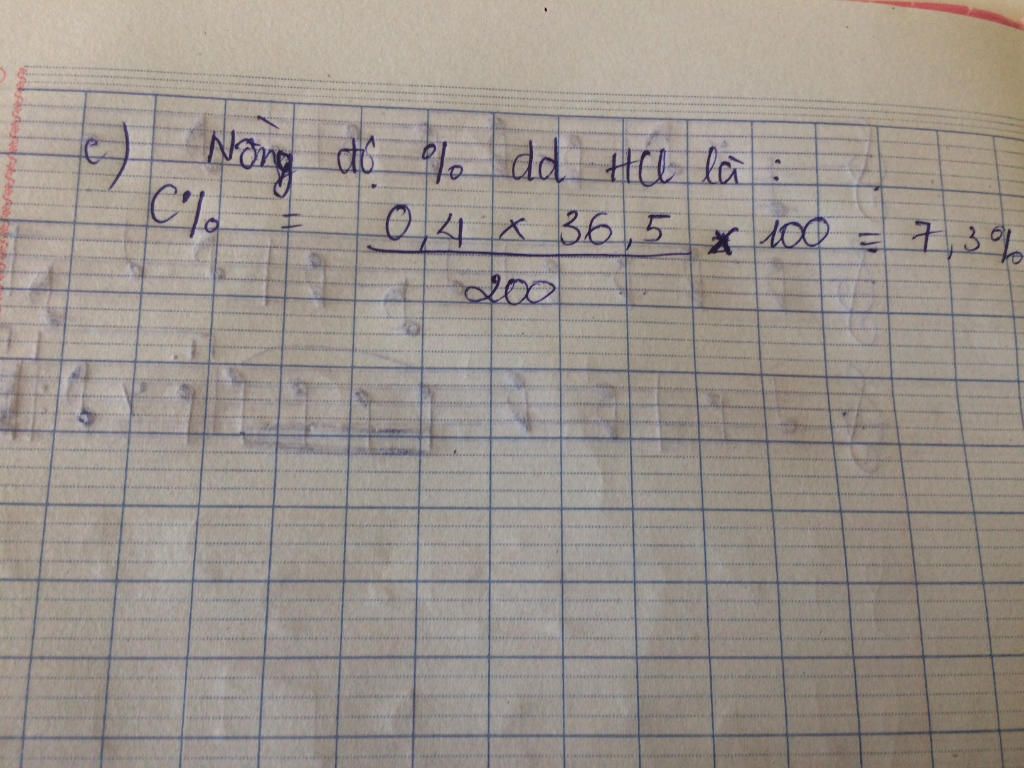 c) Nồng độ % dd HCl là :
C% = 0,4 x 36,5 x 100 = 7,3%
200